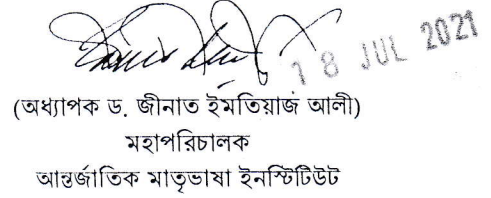 18 JUL 2021
(অধ্যাপক ড. জীনাত ইমতিয়াজ আলী)
মহাপরিচালক
আন্তর্জাতিক মাতৃভাষা ইনস্টিটিউট